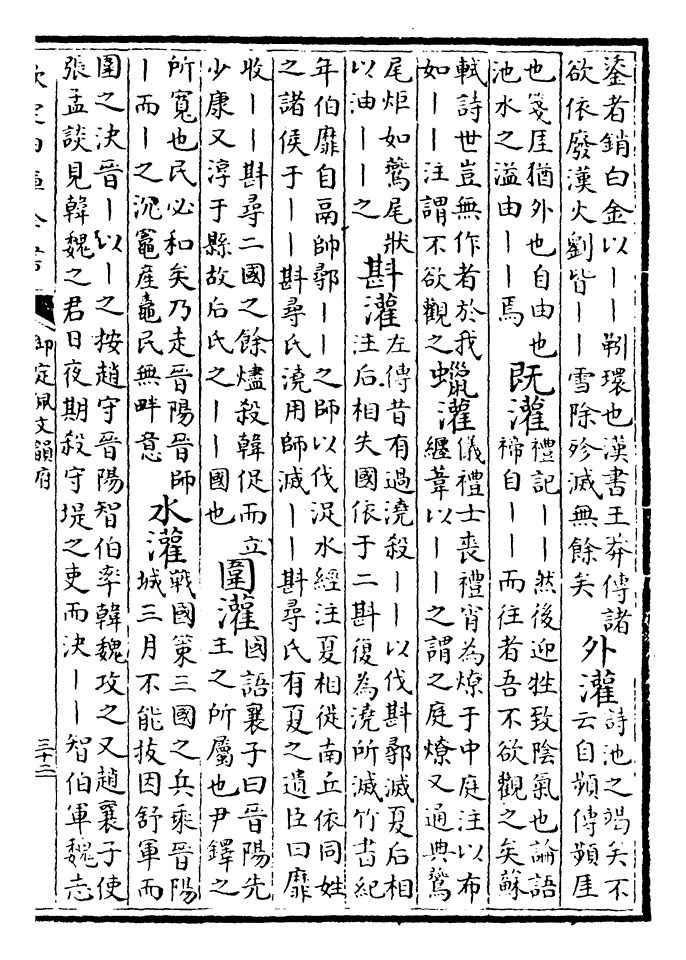 鋈者銷白金以丨丨靷環也漢書王莽傳諸
欲依廢漢火劉皆丨丨雪除殄滅無餘矣
外灌
詩池之竭矣不
云自頻傳頻厓
也箋厓猶外也自由也
池水之溢由丨丨焉
既灌
禮記丨丨然後迎牲致陰氣也論語
禘自丨丨而往者吾不欲觀之矣蘇
軾詩世豈無作者於我
如丨丨注謂不欲觀之
蠟灌
儀禮士喪禮宵為燎于中庭注以布
纒葦以丨丨之謂之庭燎又通典鶖
尾炬如鶖尾狀
以油丨丨之
斟灌
左傳昔有過澆殺丨丨以伐斟鄩滅夏后相
注后相失國依于二斟復為澆所滅竹書紀
年伯靡自鬲帥鄩丨丨之師以伐浞水經注夏相徙南丘依同姓
之諸侯于丨丨斟尋氏澆用師滅丨丨斟尋氏有夏之遺臣曰靡
收丨丨斟尋二國之餘燼殺韓促而立
少康又淳于縣故后氏之丨丨國也
圍灌
國語襄子曰晉陽先
主之所屬也尹鐸之
所寬也民必和矣乃走晉陽晉師
丨而丨之沉竈産鼃民無畔意
水灌
戰國策三國之兵乘晉陽
城三月不能拔因舒軍而
圍之決晉丨以丨之按趙守晉陽智伯率韓魏攻之又趙襄子使
張孟談見韓魏之君日夜期殺守堤之吏而決丨丨智伯軍魏志
欽定四庫全書
御定佩文韻府
三十二